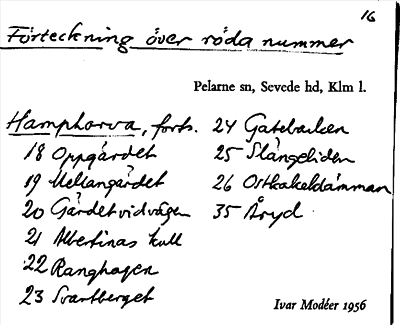 16
Förteckning över röda nummer
Pelarne sn, Sevede hd, Klm l.
Hamphorva, forts.
18 Oppgärdet
19 Mellangärdet
20 Gärdet vid vägen
21 Albertinas kull
22 Ranghagen
23 Svartberget
24 Gatebacken
25 Slängeliden
26 Ostkakeldämman
35 Åryd
Ivar Modéer 1956